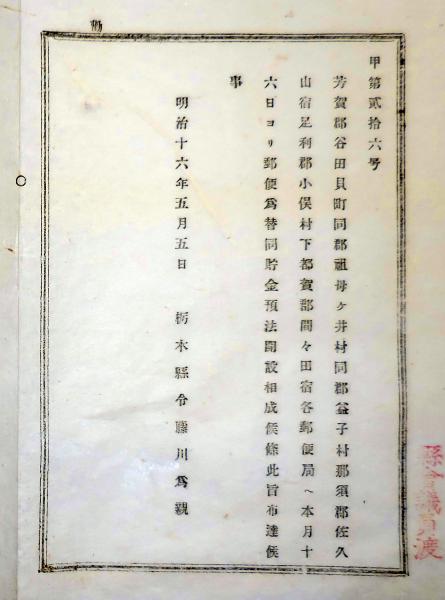 甲第貳拾六号
芳賀郡谷田貝町同郡祖母ヶ井村同郡益子村那須郡佐久
山宿足利郡小俣村下都賀郡間々田宿各郵便局ヘ本月十
六日ヨリ郵便爲替同貯金預法開設相成候條此旨布達候
事
明治十六年五月五日 栃木縣令藤川爲親
縣會議員渡